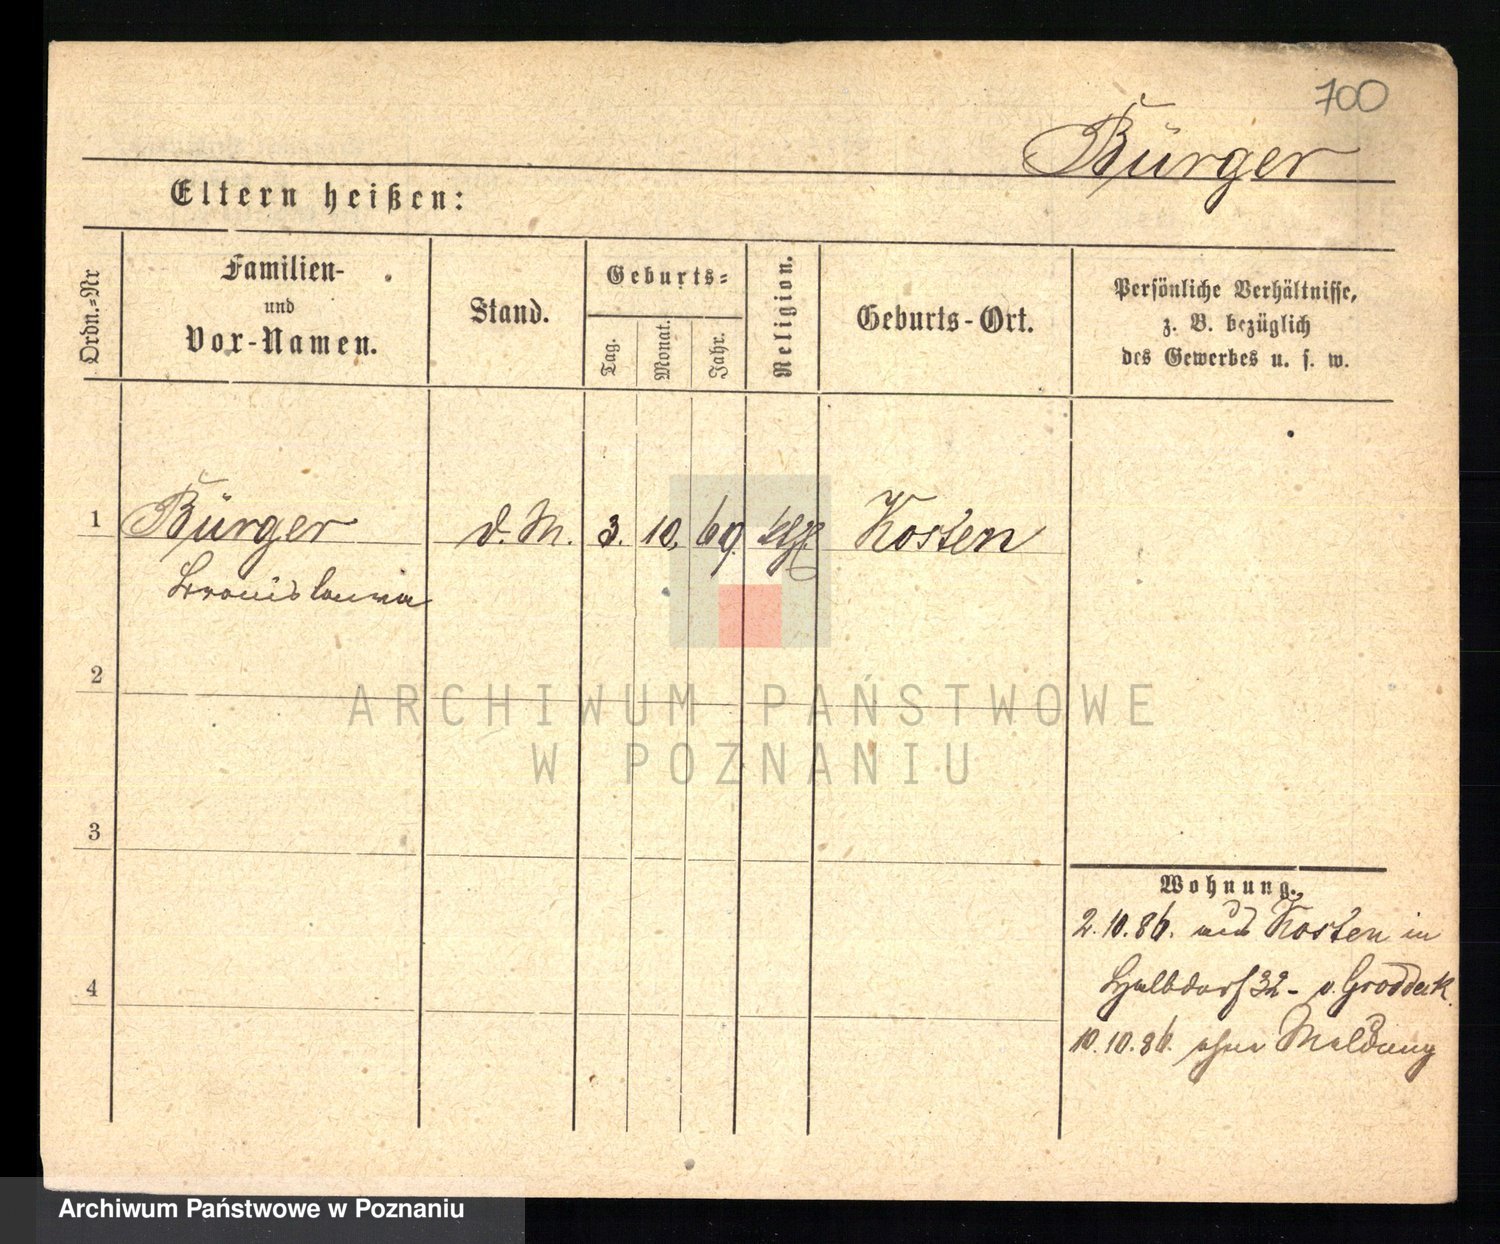 700
Bürger
Eltern heißen:
Ordn.=Nr
Familien-
und
Vor-Namen.
Stand.
Geburts=
Tag.
Monat.
Jahr.
Religion.
Geburts-Ort.
Persönliche Verhältnisse,
z. B. bezüglich
des Gewerbes u. s. w.
1 Bürger d. M. 3. 10. 69. Kosten
Bronislawa
2
3
4
Wohnung.
2.10.86. aus Kosten in
Halbdorf 32 - v. Groddeck.
10.10.86. ohne Meldung
ARCHIWUM PAŃSTWOWE
W POZNANIU
Archiwum Państwowe w Poznaniu